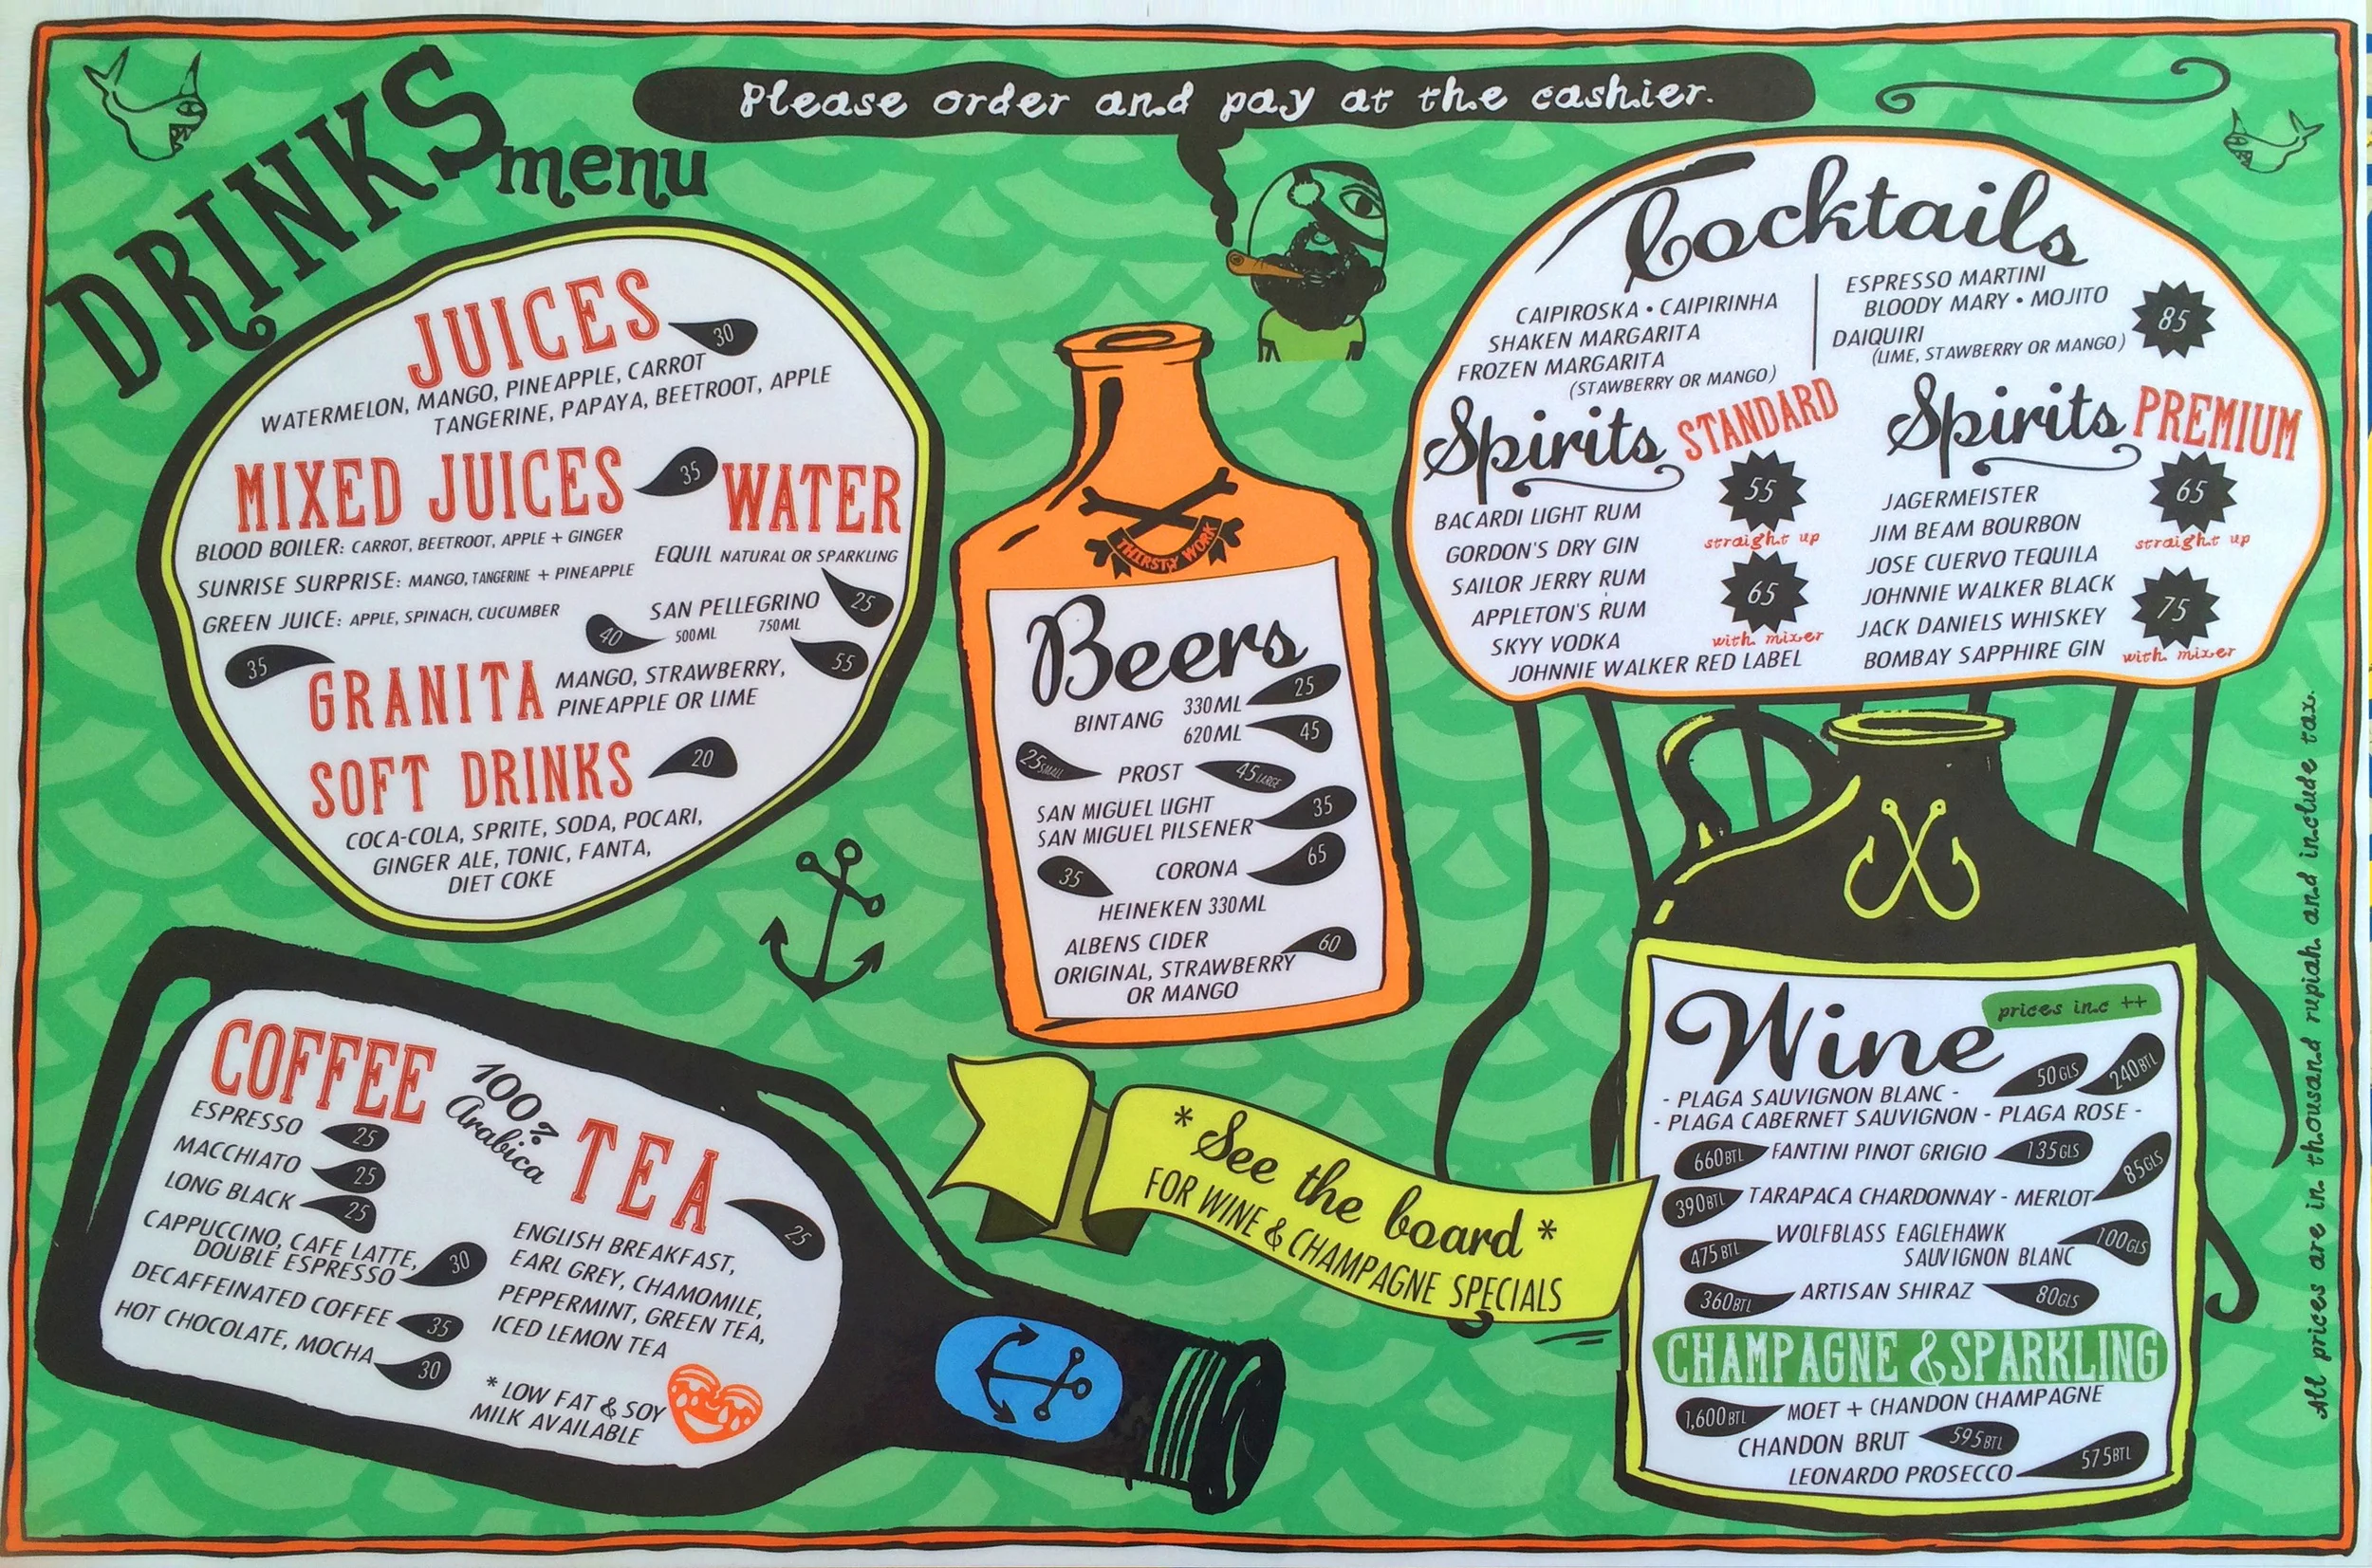 Please order and pay at the cashier.
DRINKS
menu
JUICES 30
WATERMELON, MANGO, PINEAPPLE, CARROT
TANGERINE, PAPAYA, BEETROOT, APPLE
MIXED JUICES 35
BLOOD BOILER: CARROT, BEETROOT, APPLE + GINGER
SUNRISE SURPRISE: MANGO, TANGERINE + PINEAPPLE
GREEN JUICE: APPLE, SPINACH, CUCUMBER
WATER
EQUIL NATURAL OR SPARKLING
25
SAN PELLEGRINO
40 500ML 750ML
55
35 GRANITA MANGO, STRAWBERRY,
PINEAPPLE OR LIME
SOFT DRINKS 20
COCA-COLA, SPRITE, SODA, POCARI,
GINGER ALE, TONIC, FANTA,
DIET COKE
COFFEE
100%
Arabica
ESPRESSO 25
MACCHIATO 25
LONG BLACK 25
CAPPUCCINO, CAFE LATTE,
DOUBLE ESPRESSO 30
DECAFFEINATED COFFEE 35
HOT CHOCOLATE, MOCHA 30
TEA 25
ENGLISH BREAKFAST,
EARL GREY, CHAMOMILE,
PEPPERMINT, GREEN TEA,
ICED LEMON TEA
* LOW FAT & SOY
MILK AVAILABLE
THIRSTY WORK
Beers
BINTANG 330ML 25
620ML 45
25 SMALL PROST 45 LARGE
SAN MIGUEL LIGHT 35
SAN MIGUEL PILSENER
CORONA 65
35
HEINEKEN 330ML
ALBENS CIDER 60
ORIGINAL, STRAWBERRY
OR MANGO
* See the board *
FOR WINE & CHAMPAGNE SPECIALS
Cocktails
CAIPIROSKA • CAIPIRINHA
SHAKEN MARGARITA
FROZEN MARGARITA
(STAWBERRY OR MANGO)
ESPRESSO MARTINI
BLOODY MARY • MOJITO
DAIQUIRI
(LIME, STAWBERRY OR MANGO)
85
Spirits STANDARD
BACARDI LIGHT RUM
GORDON'S DRY GIN
SAILOR JERRY RUM
APPLETON'S RUM
SKYY VODKA
JOHNNIE WALKER RED LABEL
55
straight up
65
with mixer
Spirits PREMIUM
JAGERMEISTER
JIM BEAM BOURBON
JOSE CUERVO TEQUILA
JOHNNIE WALKER BLACK
JACK DANIELS WHISKEY
BOMBAY SAPPHIRE GIN
65
straight up
75
with mixer
Wine
prices inc ++
- PLAGA SAUVIGNON BLANC - 50GLS 240BTL
- PLAGA CABERNET SAUVIGNON - PLAGA ROSE -
660BTL FANTINI PINOT GRIGIO 135GLS
390BTL TARAPACA CHARDONNAY - MERLOT 85GLS
WOLFBLASS EAGLEHAWK
475BTL SAUVIGNON BLANC 100GLS
360BTL ARTISAN SHIRAZ 80GLS
CHAMPAGNE & SPARKLING
1,600BTL MOET + CHANDON CHAMPAGNE
CHANDON BRUT 595BTL
LEONARDO PROSECCO 575BTL
All prices are in thousand rupiah and include tax.